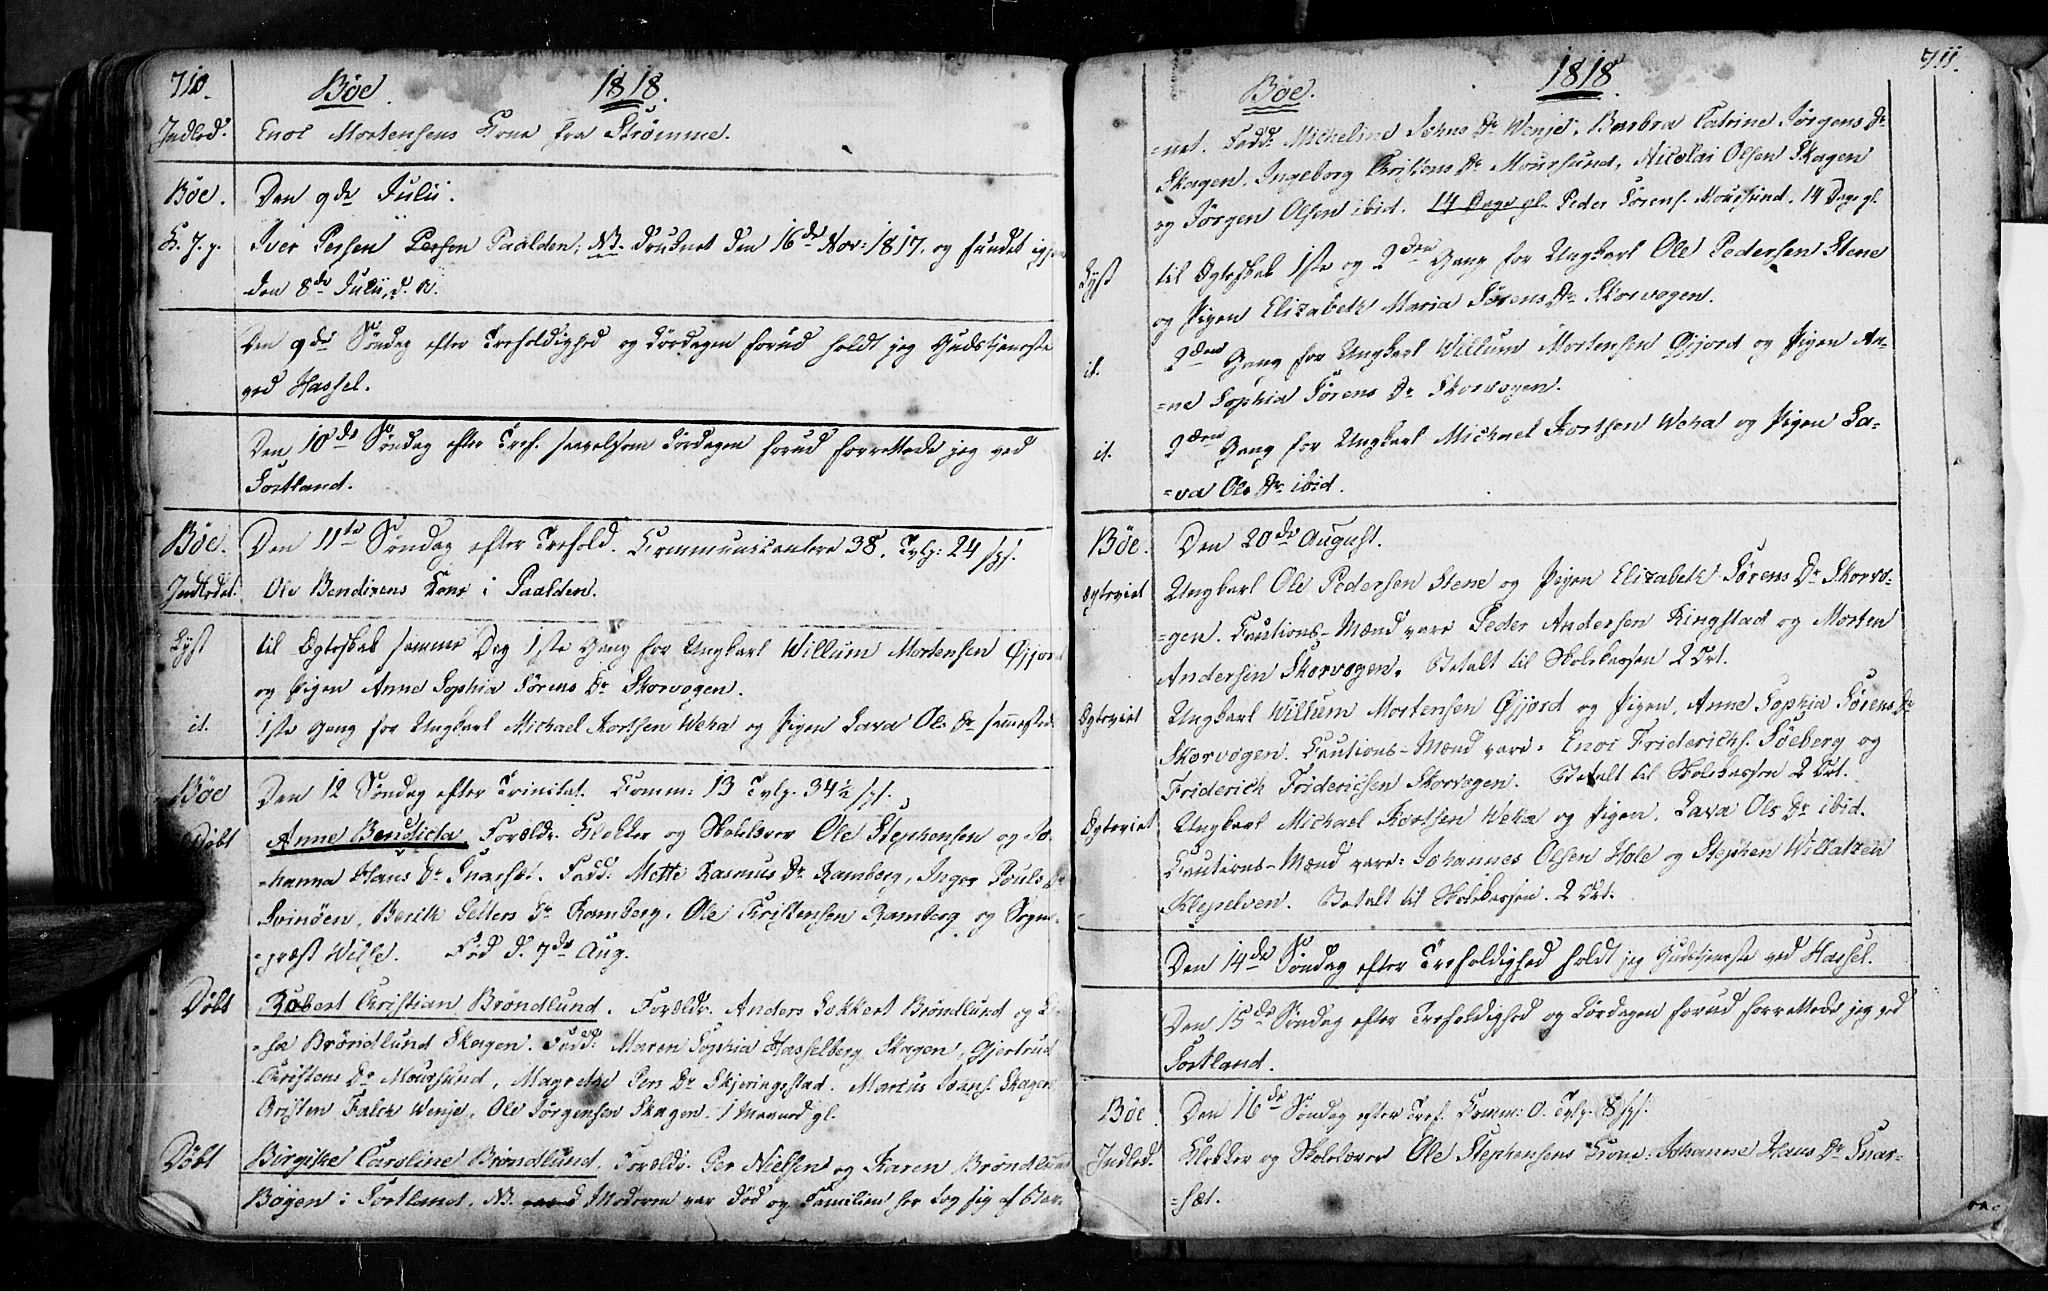 710.
Bøe. 1818.
Indled. Enoc Mortensens Kone fra Strømme.
Bøe. Den 9de Julii.
K. J. p. Iver Persen Persen Paalden, NB. druknet den 16de Nov: 1817, og fundet igjen
den 8de Julii, d. A.
Den 9de Søndag efter Trefoldighed og Lørdagen forud holdt jeg Gudstjeneste
ved Hassel.
Den 10de Søndag efter Tref. saavelsom Lørdagen forud forrettede jeg ved
Sortland.
Bøe. Den 11te Søndag efter Trefold. Kommunicantere 38. Tvlg: 24 sps.
Indledet. Ole Bendixens Kone i Paalden.
Lyst til Ægteskab samme Dag 1ste Gang for Ungkarl Willum Mortensen Øyjord
og Pigen Anne Sophia Sørens Dr Skorvogen.
it. 1ste Gang for Ungkarl Michael Kortsen Weha og Pigen Lava Ols Dr sammested.
Bøe Den 12 Søndag efter Trinitat. Komm: 13 Tvlg. 34½ sps.
Døbt Anne Benedicta. Forældr. Klokker og Skolelærer Ole Stephensen og Jo-
=hanna Hans Dr Snarset. Fadd: Mette Rasmus Dr Ramberg, Inger Pouls Dr
Svinöen, Berith Petters Dr Ramberg, Ole Christensen Ramberg og Sogne-
=præst Wilse. Fød d. 7de Aug.
Døbt Robert Christian Bröndlund. Forældr. Anders Lokkert Bröndlund og
=sæ Bröndlund Skagen. Fadd: Maren Sophia Hasselberg Skagen, Gjertrud
Christens Dr Moursund, Magrethe Pers Dr Skjeringstad. Marcus Joans. Skagen
Cristen Falch Wenje, Ole Jørgensen Skagen. 1 Maaned gl.
Døbt Birgithe Caroline Bröndlund. Forældr. Per Nielsen og Karen Bröndlund
Bogen i Sortland. NB. Moderen var død og Familien her tog sig af Bar-
711.
Bøe. 1818.
=net. Fadd: Micheline Johns Dr Wenje, Barbra Catrine Jørgens Dr
Skagen, Ingeborg Cristens Dr Moursund, Nicolai Olsen Skagen
og Jørgen Olsen ibid. 14 Dage gl. Peder Sørens. Moursund. 14 Dage gl.
Lyst til Ægteskab 1ste og 2den Gang for Ungkarl Ole Pedersen Stene
og Pigen Elizabeth Maria Sørens Dr Skorvogen.
it. 2den Gang for Ungkarl Willum Mortensen Øyjord og Pigen An-
=ne Sophia Sørens Dr Skorvogen.
it. 2den Gang for Ungkarl Michael Kortsen Weha og Pigen La-
=va Ols Dr ibid.
Bøe. Den 20de August.
Ægteviet Ungkarl Ole Pedersen Stene og Pigen Elizabeth Sørens Dr Skorvo-
=gen. Cautions-Mænd vare Peder Andersen Ringstad og Morten
Andersen Skorvogen. Betalt til Skolekassen 2 Ort.
Ægteviet Ungkarl Willum Mortensen Øyjord og Pigen Anne Sophia Sørens Dr
Skorvogen. Cautions-Mænd vare: Enoc Friderichs. Söeberg og
Friderich Friderichsen Skorvogen. Betalt til Skolekassen 2 Ort.
Ægteviet Ungkarl Michael Kortsen Weha og Pigen Lava Ols Dr ibid.
Cautions-Mænd vare: Johannes Olsen Hole og Stephen Willatzen
Klepelven. Betalt til Skolekassen. 2 Ort.
Den 14de Søndag efter Trefoldighed holdt jeg Gudstjeneste ved Hassel.
Den 15de Søndag efter Trefoldighed og Lørdagen forud forrettede jeg ved
Sortland.
Bøe. Den 16de Søndag efter Tref. Komm: 0. Tvlg. 8 sps.
Indled. Klokker og Skolelærer Ole Stephensens Kone: Johanne Hans Dr Snar-
=set.